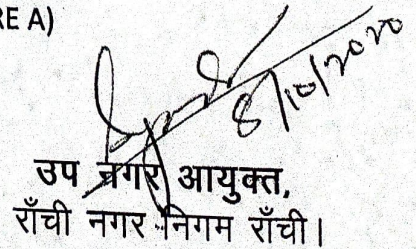 RE A)
8/10/2020
उप नगर आयुक्त,
राँची नगर निगम राँची।